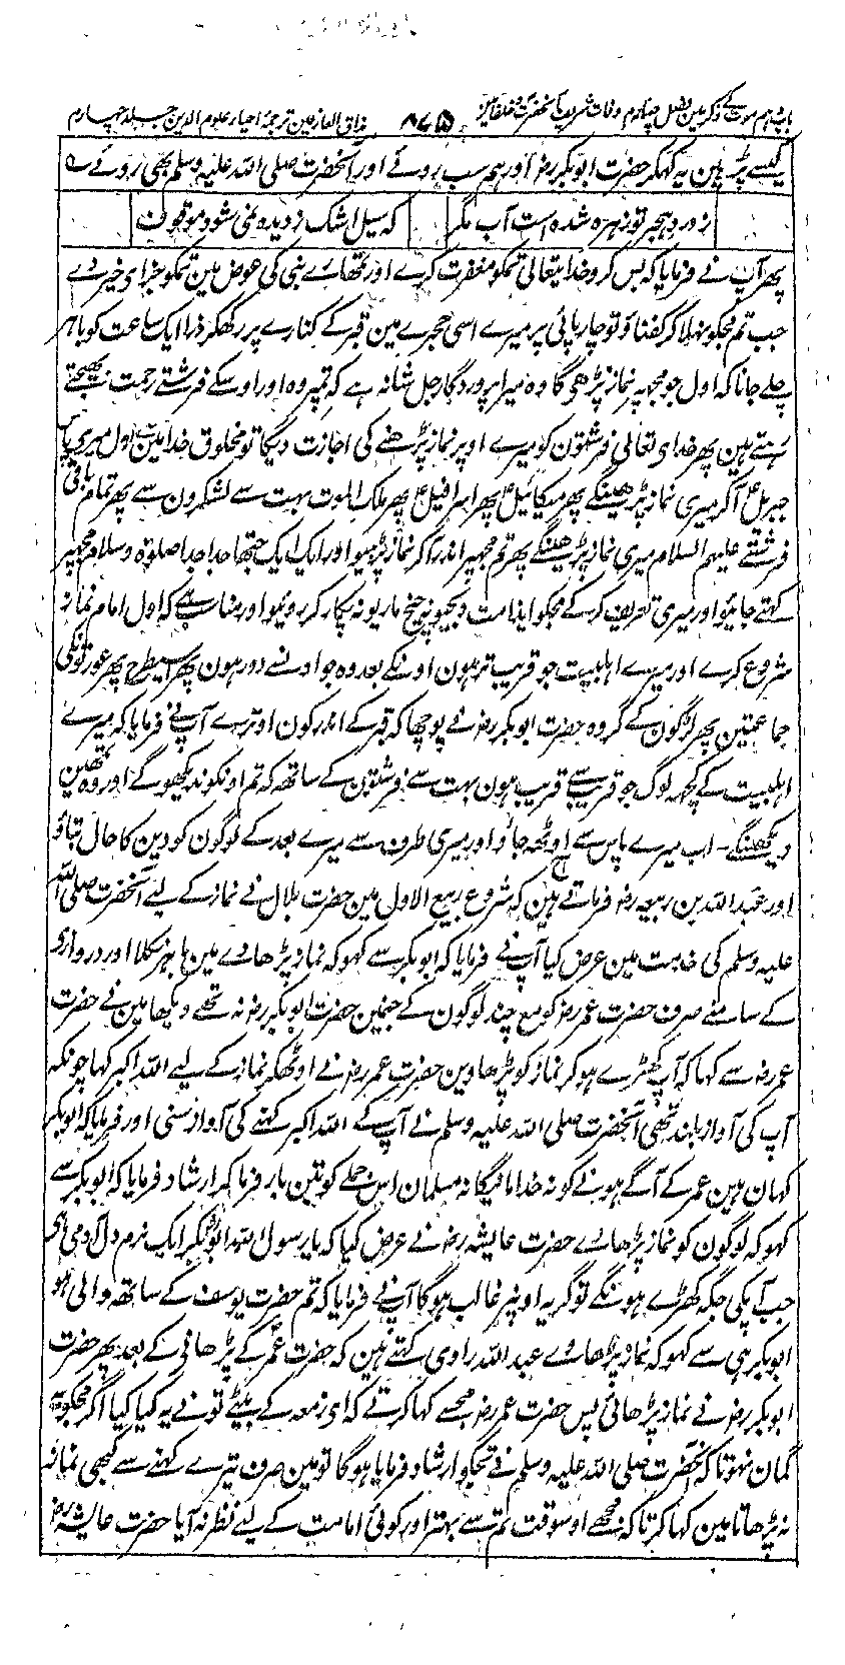 باب دہم موت کے ذکر مین فصل چہارم وفات شریف آنحضرت و خلفا مین ۸۷۵ مذاق العارفین ترجمۂ احیاء علوم الدین جلد چہارم
کیسے پڑہین یہ کہکر حضرت ابوبکر رض اور ہم سب روئے اور آنحضرت صلی اللہ علیہ وسلم بھی روئے ے
ز درد ہجر تو زہرہ شدہ است آب مگر کہ سیل اشک ز دیدہ نمی شود موقوف
پھر آپ نے فرمایا کہ بس کرو خدایتعالی تمکو مغفرت کرے اور تمھارے نبی کی عوض مین تمکو جزای خیر دے
جب تم مجکو نہلا کر کفناؤ تو چارپائی پر میرے اسی حجرے مین قبر کے کنارے پر رکھکر ذرا ایک ساعت کو باہر
چلے جانا کہ اول جو مجھپر نماز پڑھیگا وہ میرا پروردگار جل شانہ ہے کہ تمپر وہ اور اوسکے فرشتے رحمت بھیجتے
رہتے ہین پھر خدای تعالی فرشتون کو میرے اوپر نماز پڑھنے کی اجازت دیگا تو مخلوق خدا مین سے اول میرے پاس
جبریل آکر میری نماز پڑھینگے پھر میکائیل پھر اسرافیل پھر ملک الموت بہت سے لشکرون سے پھر تمام باقی
فرشتے علیہم السلام میری نماز پڑھینگے پھر تم مجھپر اندر آکر نماز پڑہیو اور ایک ایک جتھا جدا جدا صلوۃ وسلام مجھپر
کہتے جائیو اور میری تعریف کر کے مجکو ایذا مت دیجیو نہ چیخ ماریو نہ پکار کر روئیو اور مناسب ہے کہ اول امام نماز
شروع کرے اور میرے اہلبیت جو قریب تر ہون اونکے بعد وہ جو اونسے دور ہون پھر اسیطرح پھر عورتونکی
جماعتین پھر لڑکون کے گروہ حضرت ابوبکر رض نے پوچھا کہ قبر کے اندر کون اوترے آپ نے فرمایا کہ میرے
اہلبیت کے کچھ لوگ جو قریب سے قریب ہون بہت سے فرشتون کے ساتھ کہ تم اونکو نہ دیکھو گے اور وہ تمھین
دیکھینگے۔ اب میرے پاس سے اوٹھ جاؤ اور میری طرف سے میرے بعد کے لوگون کو دین کا حال بتاؤ
اور عبد اللہ بن ربیعہ رض فرماتے ہین کہ شروع ربیع الاول مین حضرت بلال نے نماز کے لیے آنحضرت صلی اللہ
علیہ وسلم کی خدمت مین عرض کیا آپ نے فرمایا کہ ابوبکر سے کہو کہ نماز پڑھادے مین باہر نکلا اور دروازی
کے سامنے صرف حضرت عمر رض کو مع چند لوگون کے جنمین حضرت ابوبکر رض نہ تھے دیکھا مین نے حضرت
عمر رض سے کہا کہ آپ کھڑے ہو کر نماز کو پڑھا دین حضرت عمر رض نے اوٹھکر نماز کے لیے اللہ اکبر کہا چونکہ
آپ کی آواز بلند تھی آنحضرت صلی اللہ علیہ وسلم نے آپ کے اللہ اکبر کہنے کی آواز سنی اور فرمایا کہ ابوبکر
کہان ہین عمر کے آگے ہونے کو نہ خدا مانیگا نہ مسلمان اس جملے کو تین بار فرما کر ارشاد فرمایا کہ ابوبکر سے
کہو کہ لوگون کو نماز پڑھائے حضرت عایشہ رض نے عرض کیا کہ یا رسول اللہ ابوبکر ایک نرم دل آدمی ہی
جب آپکی جگہ کھڑے ہونگے تو گریہ اونپر غالب ہو گا آپ نے فرمایا کہ تم حضرت یوسف کے ساتھ والی ہو
ابوبکر ہی سے کہو کہ نماز پڑھاوے عبد اللہ راوی کہتے ہین کہ حضرت عمر کے پڑھانے کے بعد پھر حضرت
ابوبکر رض نے نماز پڑھائی پس حضرت عمر رض مجھسے کہا کرتے کہ ای زمعہ کے بیٹے تونے یہ کیا کیا اگر مجکو یہ
گمان نہوتا کہ آنحضرت صلی اللہ علیہ وسلم نے تجکو ارشاد فرمایا ہوگا تو مین صرف تیرے کہنے سے کبھی نماز
نہ پڑھاتا مین کہا کرتا کہ مجھے اوسوقت تم سے بہتر اور کوئی امامت کے لیے نظر نہ آیا حضرت عایشہ رض